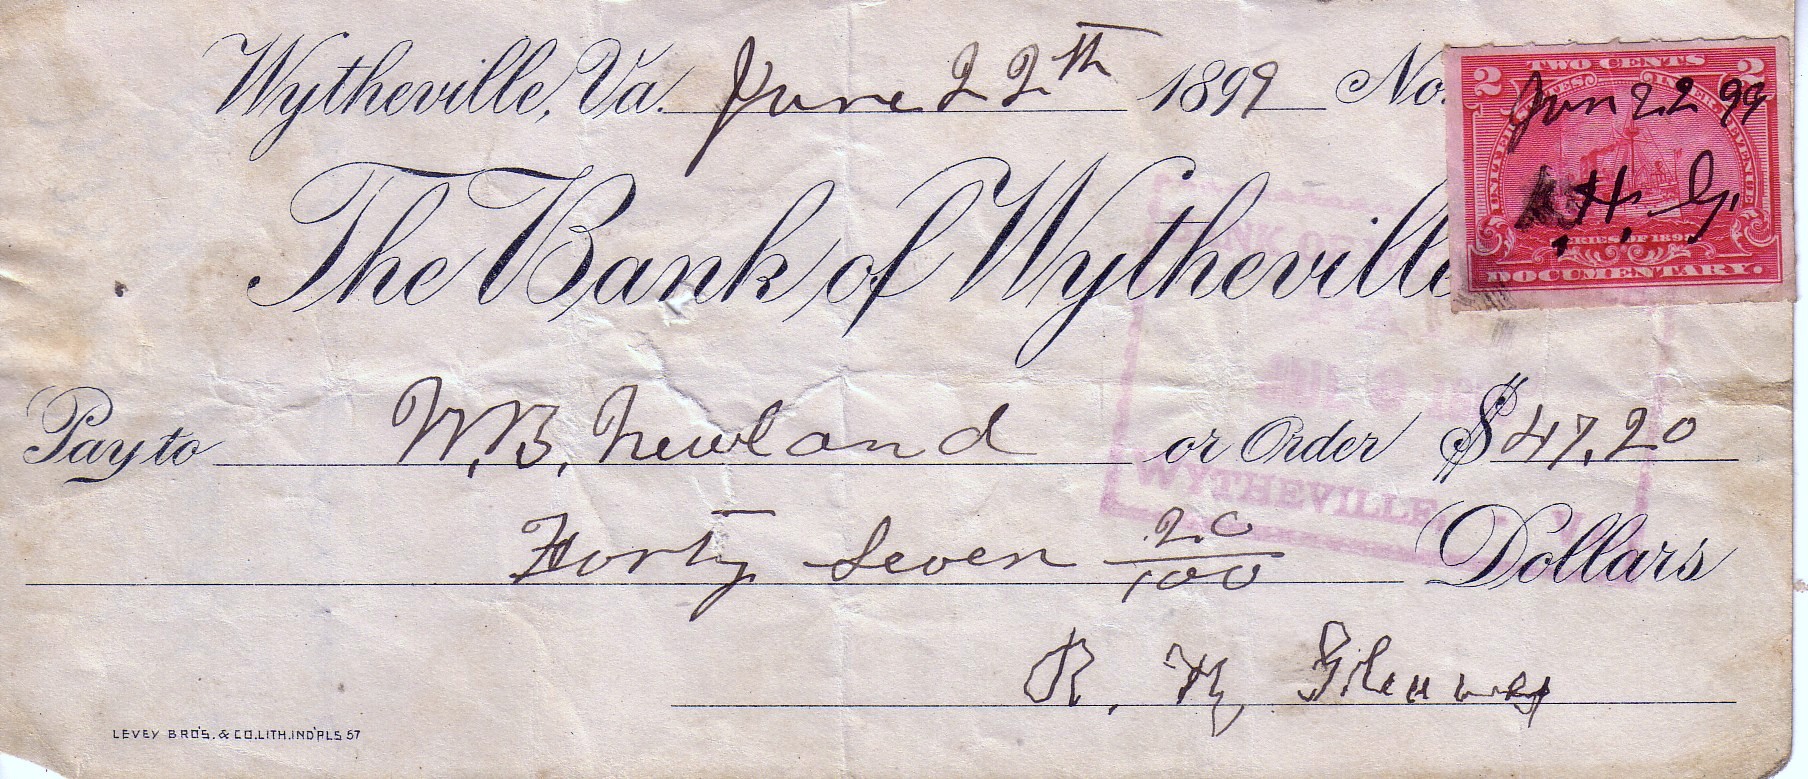 Wytheville, Va. June 22th 1899 No.
TWO CENTS
2 2
UNITED STATES INTER. REVENUE
Jun 22 99
H. G.
SERIES OF 1898
2 2
DOCUMENTARY.
The Bank of Wytheville
BANK OF
Pay to W. B. Newland or Order $47.20
WYTHEVILLE,
Forty Seven 20/100 Dollars
R. H.
LEVEY BRO'S. & CO. LITH. IND'PLS 57